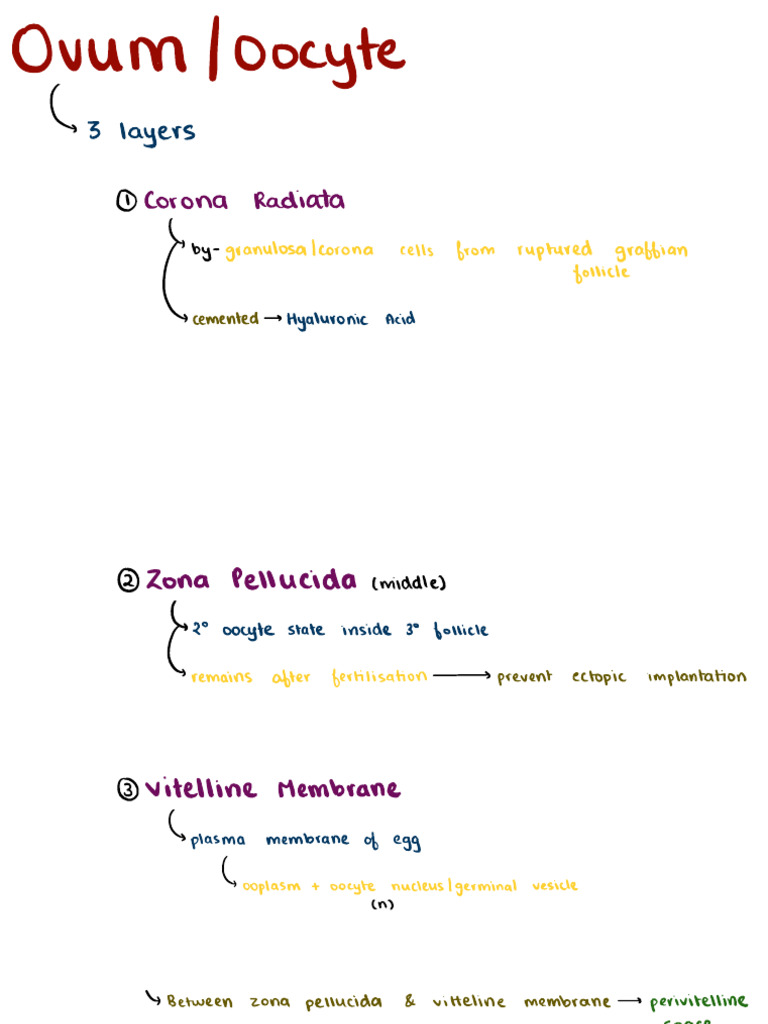 Ovum / Oocyte
3 layers
① Corona Radiata
by- granulosa/corona cells from ruptured graffian
follicle
cemented → Hyaluronic Acid
② Zona Pellucida (middle)
2° oocyte state inside 3° follicle
remains after fertilisation → prevent ectopic implantation
③ Vitelline Membrane
plasma membrane of egg
ooplasm + oocyte nucleus/germinal vesicle
(n)
Between zona pellucida & vitteline membrane → perivitelline